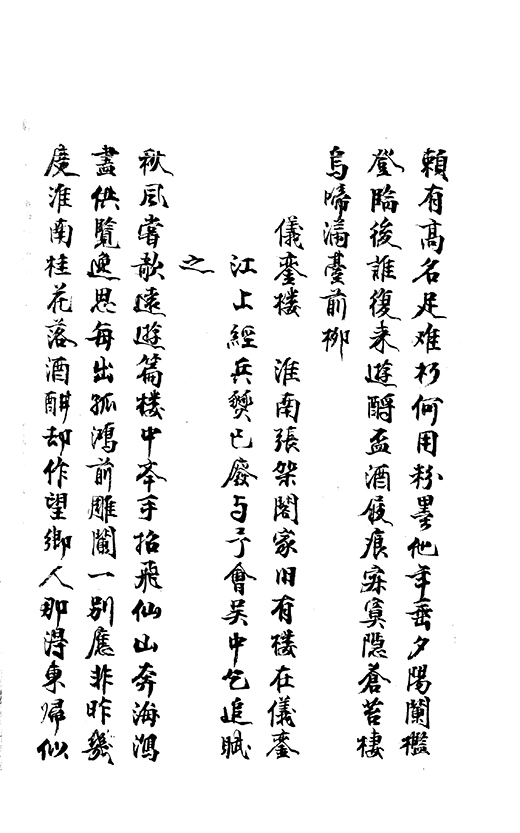 賴有髙名足难朽何用粉墨他年垂夕陽闌檻
登臨後誰復来遊酹盃酒屐痕寂寞隱蒼苔棲
烏啼滿臺前柳
儀鸞楼　淮南張架閣家旧有楼在儀鸞
江上經兵燹已廢与予會吴中乞追賦
之
秋風嘗歌遠遊篇楼中夲手招飛仙山奔海瀉
盡供覽逸思每出孤鴻前雕闌一别應非昨幾
度淮南桂花落酒酣却作望鄉人那得東歸似